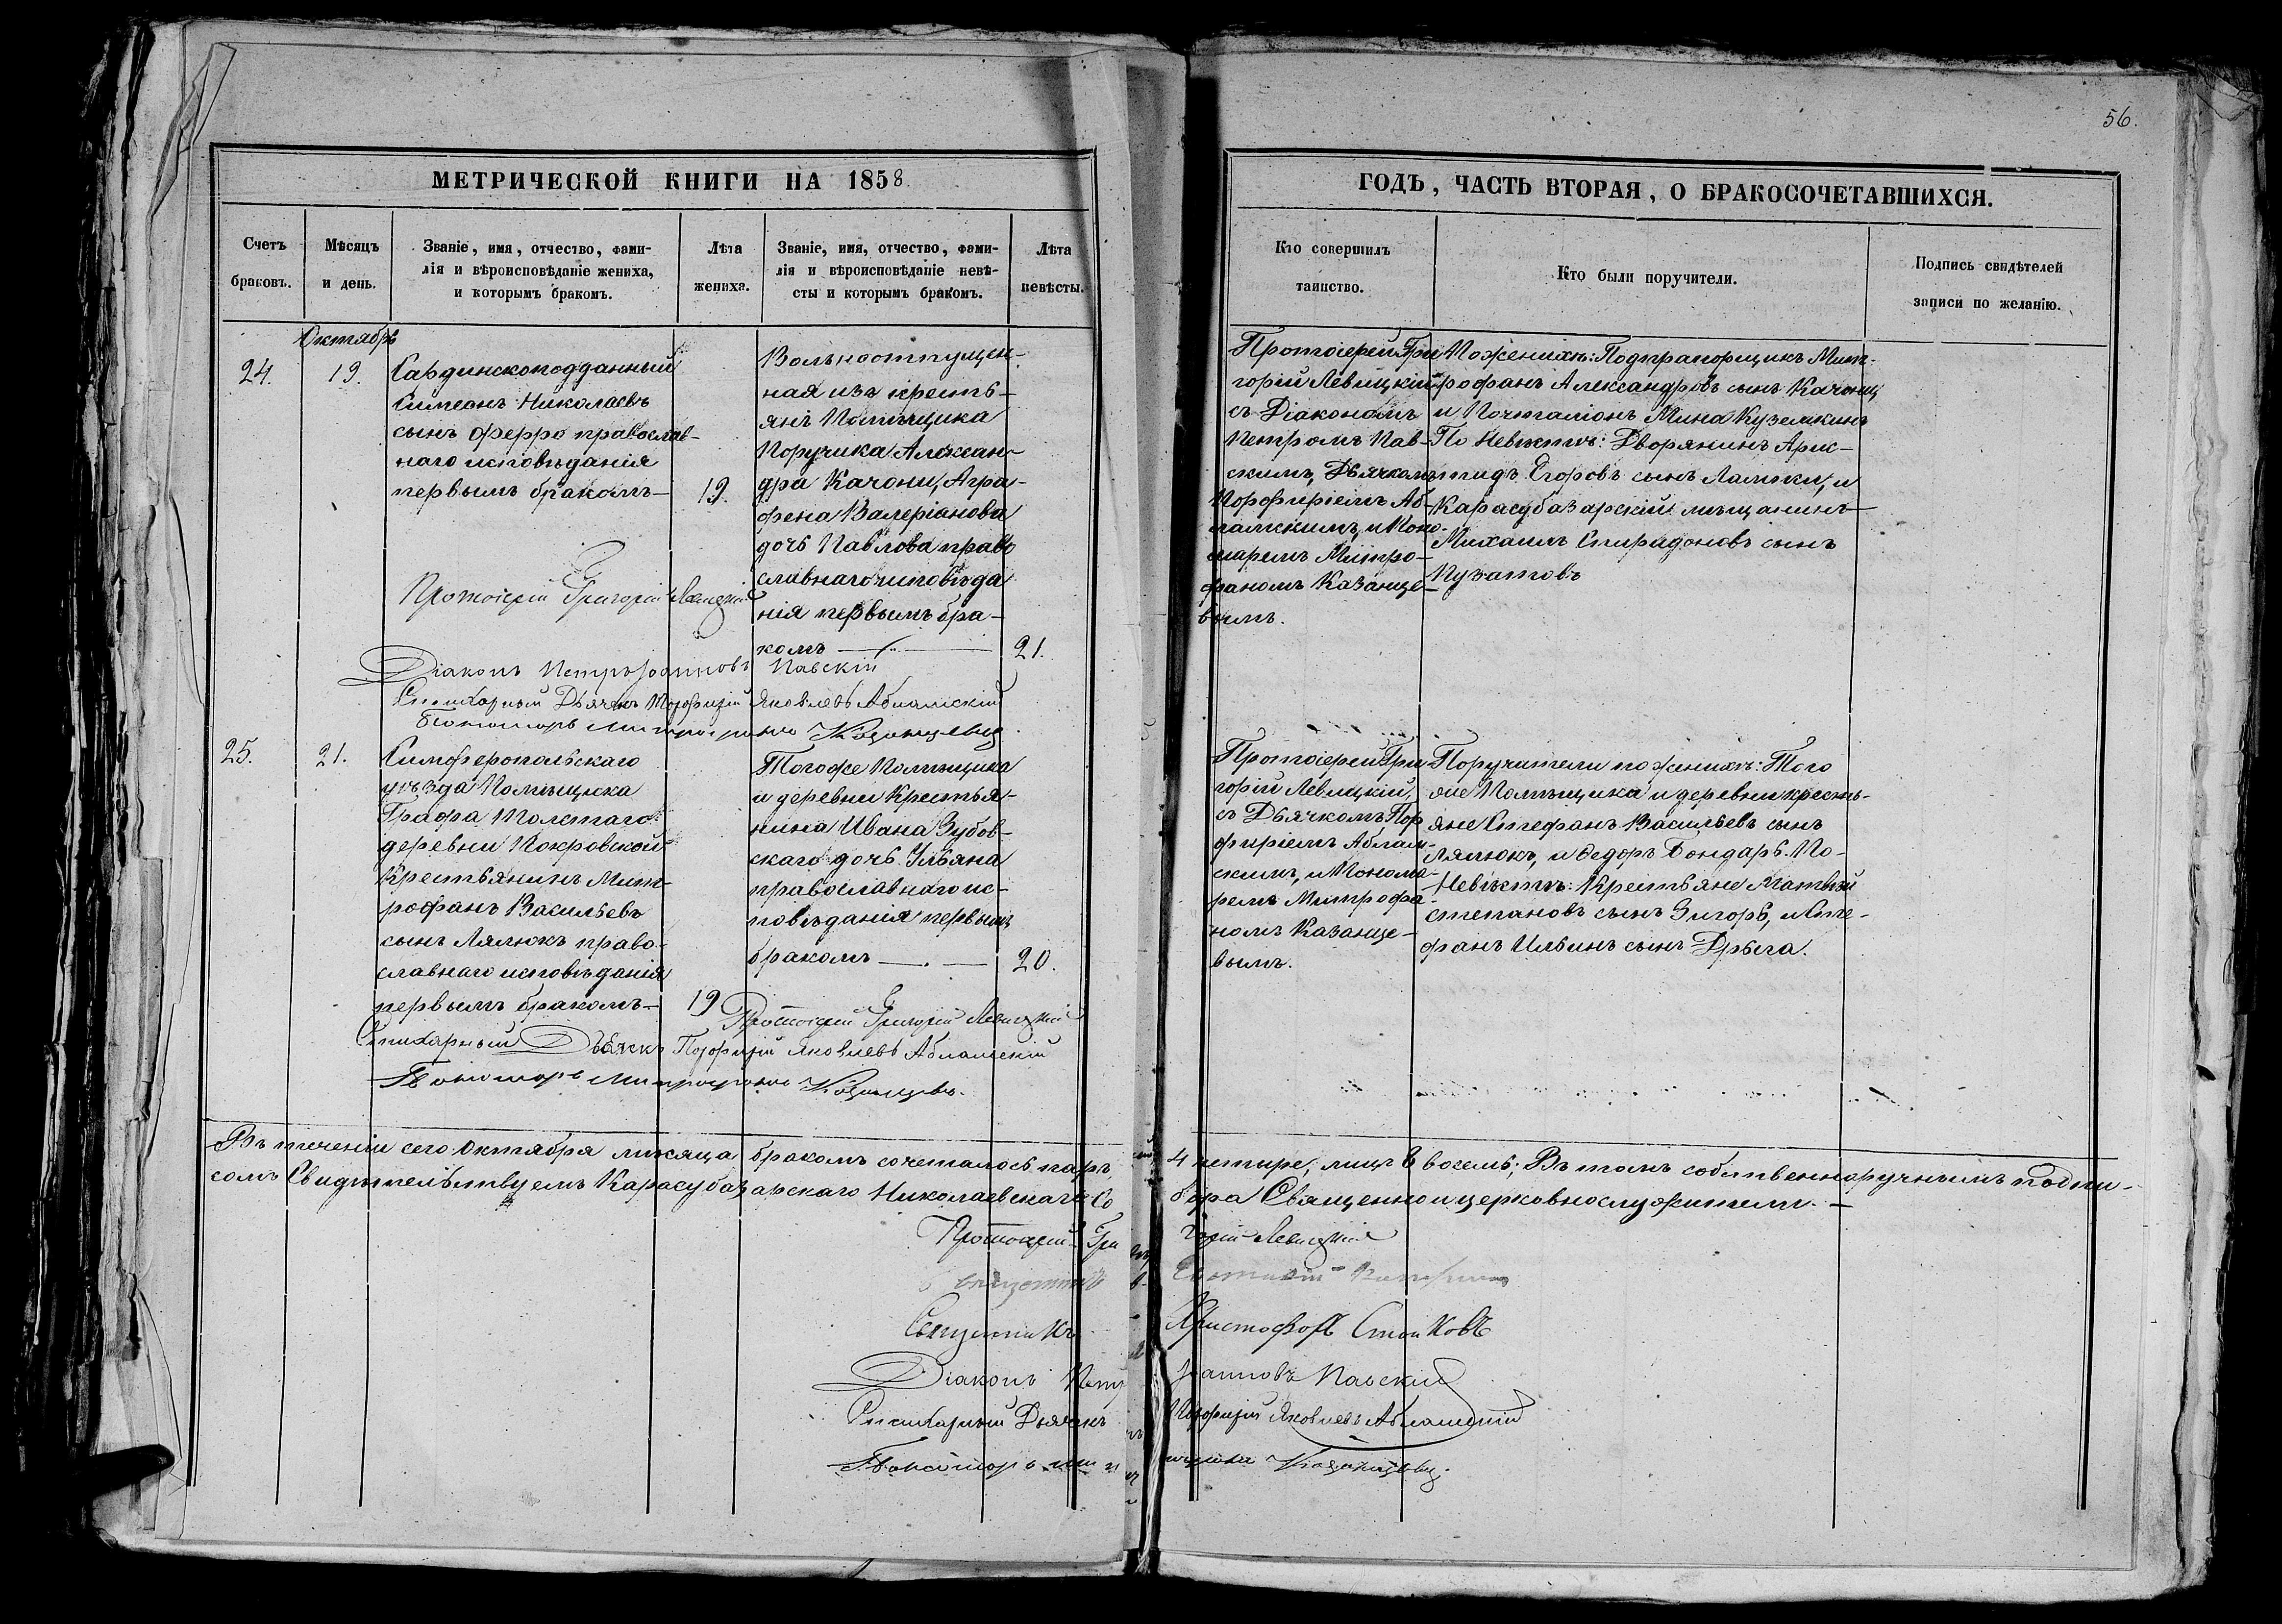 56.
МЕТРИЧЕСКОЙ КНИГИ НА 1858
ГОДЪ, ЧАСТЬ ВТОРАЯ, О БРАКОСОЧЕТАВШИХСЯ.
Счетъ
браковъ.
Мѣсяцъ
и день.
Званіе, имя, отчество, фами-
лія и вѣроисповѣданіе жениха,
и которымъ бракомъ.
Лѣта
жениха.
Званіе, имя, отчество, фами-
лія и вѣроисповѣданіе невѣ-
сты и которымъ бракомъ.
Лѣта
невѣсты.
Кто совершилъ
таинство.
Кто были поручители.
Подпись свидѣтелей
записи по желанію.
Октябрь
24.
19.
Сардинскоподданный
Симеонъ Николаевъ
сынъ Ферро православ-
наго исповѣданія
первымъ бракомъ—
19.
Вольноотпущен-
ная изъ кресть-
янъ Помѣщика
Поручика Алексан-
дра Качони, Агра-
фена Валеріанова
дочь Павлова право
славнаго исповѣда
нія первымъ бра-
комъ —
21.
Протоіерей Гри
горій Левицкій
съ Діакономъ
Петромъ Пав-
скимъ, Дьячкомъ
Порфиріемъ Аб-
ламскимъ, и Поно-
маремъ Митро-
фаномъ Казанце-
вымъ.
По женихѣ: Подпрапорщикъ Мит-
рофанъ Александровъ сынъ Качони,
и Почталіонъ Мина Куземкинъ
По Невѣстѣ: Дворянинъ Арис-
тидъ Егоровъ сынъ Ламки, и
Карасубазарскій мѣщанинъ
Михаилъ Спиридоновъ сынъ
Пузатовъ
Протоіерей Григорій Левицкій
Діаконъ Петръ Іоанновъ Павскій
Стихарный Дьячекъ Порфирій Яковлевъ Абламскій
Пономарь Митрофанъ Казанцевъ
25.
21.
Симферопольскаго
уѣзда Помѣщика
Графа Толстаго
деревни Покровской
Крестьянинъ Мит-
рофанъ Васильевъ
сынъ Лялюкъ право-
славнаго исповѣданія
первымъ бракомъ—
19
Тогоже Помѣщика
и деревни Крестья-
нина Ивана Зубов-
скаго дочь Ульяна
православнаго ис-
повѣданія первымъ
бракомъ —
20.
Протоіерей Гри
горій Левицкій,
съ Дьячкомъ Пор
фиріемъ Аблам-
скимъ, и Понома-
ремъ Митрофа-
номъ Казанце-
вымъ.
Поручители по женихѣ: Того
же Помѣщика и деревни кресть-
яне Стефанъ Васильевъ сынъ
Лялюкъ, и Ѳедоръ Бондарь. По-
Невѣстѣ: Крестьяне Матвѣй
степановъ сынъ Зигорь, и Сте-
фанъ Ильинъ сынъ Дрыга.
Протоіерей Григорій Левицкій
Стихарный Дьячекъ Порфирій Яковлевъ Абламскій
Пономарь Митрофанъ Казанцевъ.
Въ теченіи сего Октября мѣсяца бракомъ сочеталось паръ, 4 четыре, лицъ 8 восемь; Въ томъ собственноручнымъ подпи-
сомъ Свидѣтельствуемъ Карасубазарскаго Николаевскаго Собора Священно и церковнослужители. —
Протоіерей Григорій Левицкій
Священникъ
Священникъ Христофоръ Стоиковъ
Діаконъ Петръ Іоанновъ Павскій
Стихарный Дьячекъ Порфирій Яковлевъ Абламскій
Пономарь Митрофанъ Казанцевъ.